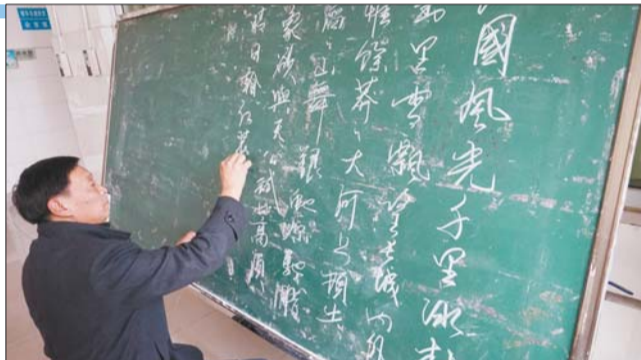 國風光千里冰封
萬里雪飄望長城内外
惟餘莽々大河上頓失
滔々山舞銀蛇原馳臘
象欲與天公試比高須
晴日看紅裝